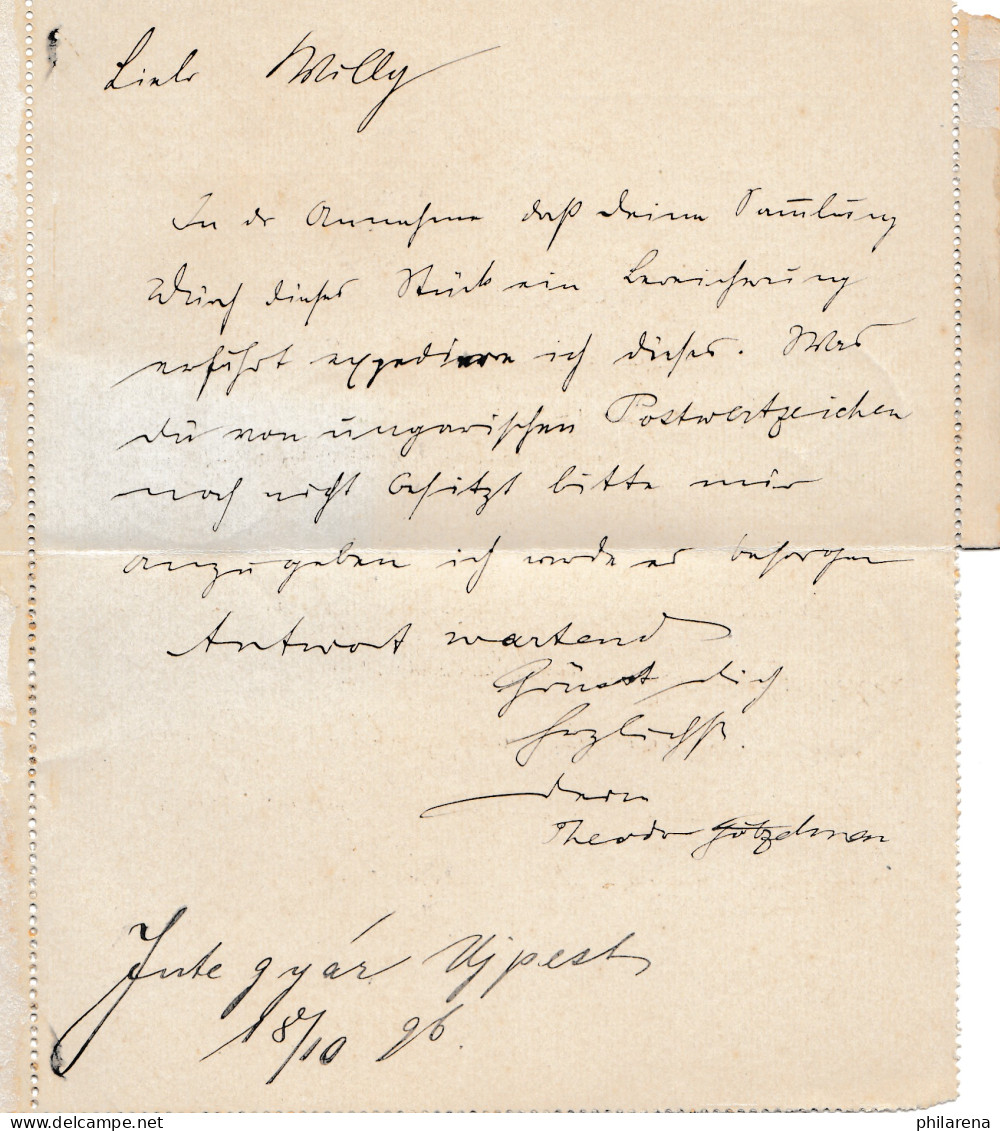 Lieber Willy
In der Annahme daß deine Sam̅lung
durch dieses Stück ein Bereicherung
erfährt expediere ich dieses. Was
du von ungarischen Postwertzeichen
noch nicht besitzt bitte mir
anzugeben ich werde es besorgen
Antwort wartend
Grüsst dich
herzlichst.
dein
Theodor Götzelman
Jute gyár Ujpest
18/10 96.
philarena.com